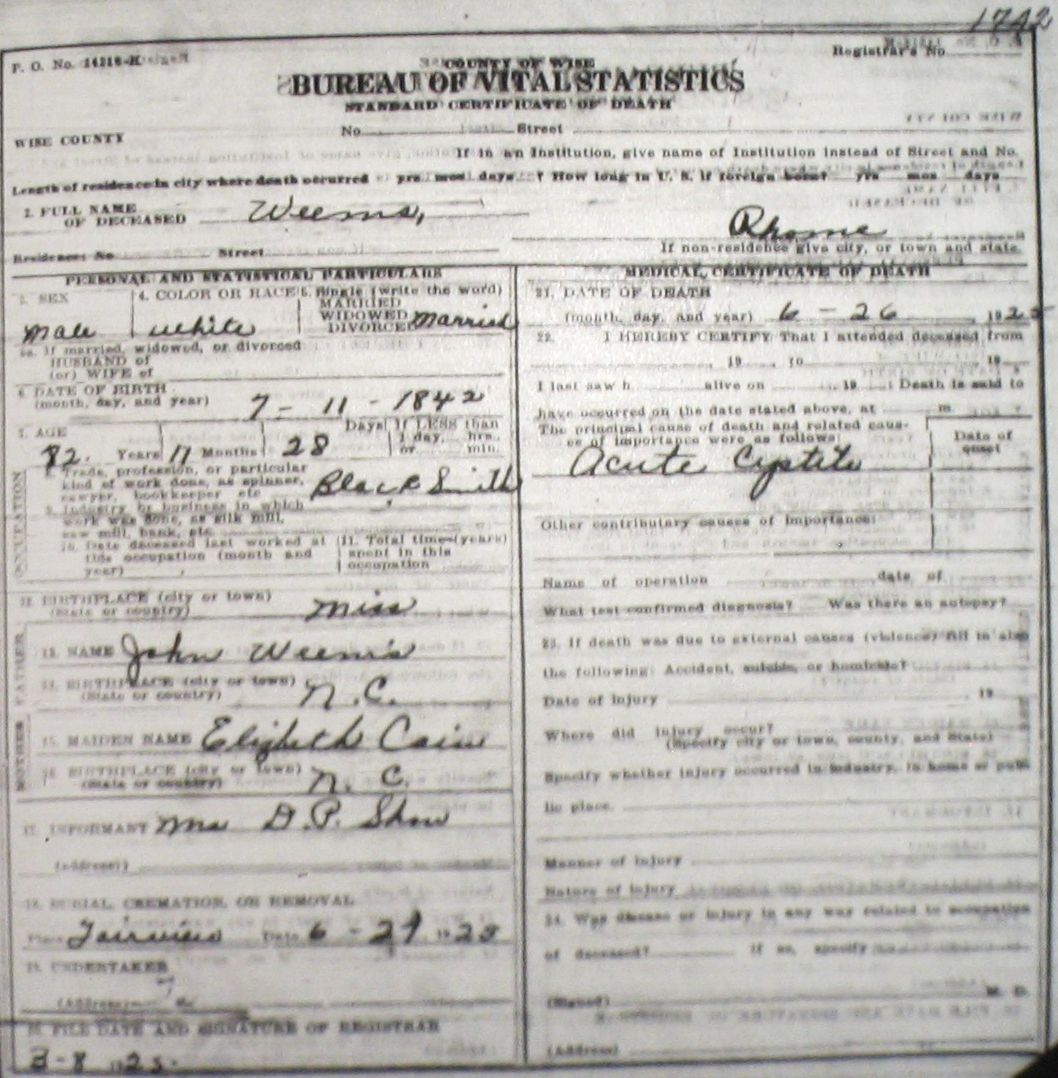 1742
F. O. No. 14216-K
Registrar's No.
COUNTY OF WISE
BUREAU OF VITAL STATISTICS
STANDARD CERTIFICATE OF DEATH
WISE COUNTY
No. Street
If in an Institution, give name of Institution instead of Street and No.
Length of residence in city where death occurred yrs mos days ? How long in U. S. if foreign born? yrs mos days
2. FULL NAME OF DECEASED Weems,
Rhome
Residence: No. Street
If non-residence give city, or town and state.
PERSONAL AND STATISTICAL PARTICULARS
3. SEX Male
4. COLOR OR RACE white
5. Single (write the word) MARRIED WIDOWED DIVORCED Married
5a. If married, widowed, or divorced
HUSBAND of
(or) WIFE of
6. DATE OF BIRTH
(month, day, and year) 7 - 11 - 1842
7. AGE
82. Years 11 Months 28 Days If LESS than
1 day, hrs.
or min.
OCCUPATION
8. Trade, profession, or particular
kind of work done, as spinner,
sawyer, bookkeeper etc Black Smith
9. Industry or business in which
work was done, as silk mill,
saw mill, bank, etc
10. Date deceased last worked at
this occupation (month and
year)
11. Total time (years)
spent in this
occupation
12. BIRTHPLACE (city or town)
(State or country) Miss
FATHER
13. NAME John Weems
14. BIRTHPLACE (city or town)
(State or country) N. C.
MOTHER
15. MAIDEN NAME Elizbeth Cain
16. BIRTHPLACE (city or town)
(State or country) N. C.
17. INFORMANT Mrs D. P. Shaw
(address)
18. BURIAL CREMATION OR REMOVAL
Place Fairview Date 6 - 27 1925
19. UNDERTAKER
(Address)
20. FILE DATE AND SIGNATURE OF REGISTRAR
3-8 1925.
MEDICAL CERTIFICATE OF DEATH
21. DATE OF DEATH
(month, day, and year) 6 - 26 1925
22. I HEREBY CERTIFY That I attended deceased from
19 to 19
I last saw h alive on 19 ; Death is said to
have occurred on the date stated above, at m.
The principal cause of death and related causes of importance were as follows:
Date of onset
Acute Cystite
Other contributary causes of Importance:
Name of operation date of
What test confirmed diagnosis? Was there an autopsy?
23. If death was due to external causes (violence) fill in also
the following: Accident, suicide, or homicide?
Date of injury 19
Where did injury occur?
(Specify city or town, county, and State)
Specify whether injury occurred in industry, in home or public place.
Manner of injury
Nature of injury
24. Was disease or injury in any way related to occupation
of deceased? If so, specify
(Signed) M. D.
(Address)